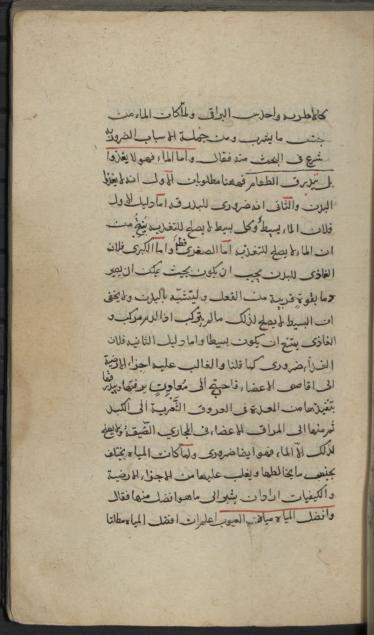 كالاطريه واحذب البراقى ولما كان الماء من
جنس ما يشرب ومن جملة الاسباب الضروريه
شرع فى البحث عنه فقال واما الماء فهو لا يغذوا
بل يبذرق الطعام فههنا مطلوبان الاول انه لا يغذو
البدن والثانى انه ضرورى للبدرقه اما دليل الاول
فلان الماء بسيط وكل بسيط لا يصلح للتغذيه ينتج من
ان الماء لا يصلح للتغذيه اما الصغرى فظ واما الكبرى فلان
الغاذى للبدن يجب ان يكون بحيث يمكن ان يصير
دما بقوة قريبة من الفعل ويتشبه بالبدن ولا يخفى
ان البسيط لا يصلح لذلك ما لم يتركب اذ الدم مركب و
الغاذى يمتنع ان يكون بسيطا واما دليل الثانيه فلان
الغذاء ضرورى كما قلنا والغالب عليه اجزاء الارضية
الى اقاصى الاعضاء فاحتيج الى معاون يرققها ويبذرقها
بتنفيذها من المعدة فى العروق الشعرية الى الكبد
ثم منها الى المراق الاعضاء فى المجارى الضيقة ولا يصلح
لذلك الا الماء فهو ايضا ضرورى ولما كان المياه يختلف
بحسب ما يخالطها ويغلب عليها من الاجزاء الارضية
والكيفيات اراد ان يشير الى ما هو افضل منها فقال
وافضل المياه مياه العيون اعلم ان افضل المياه مطلقا